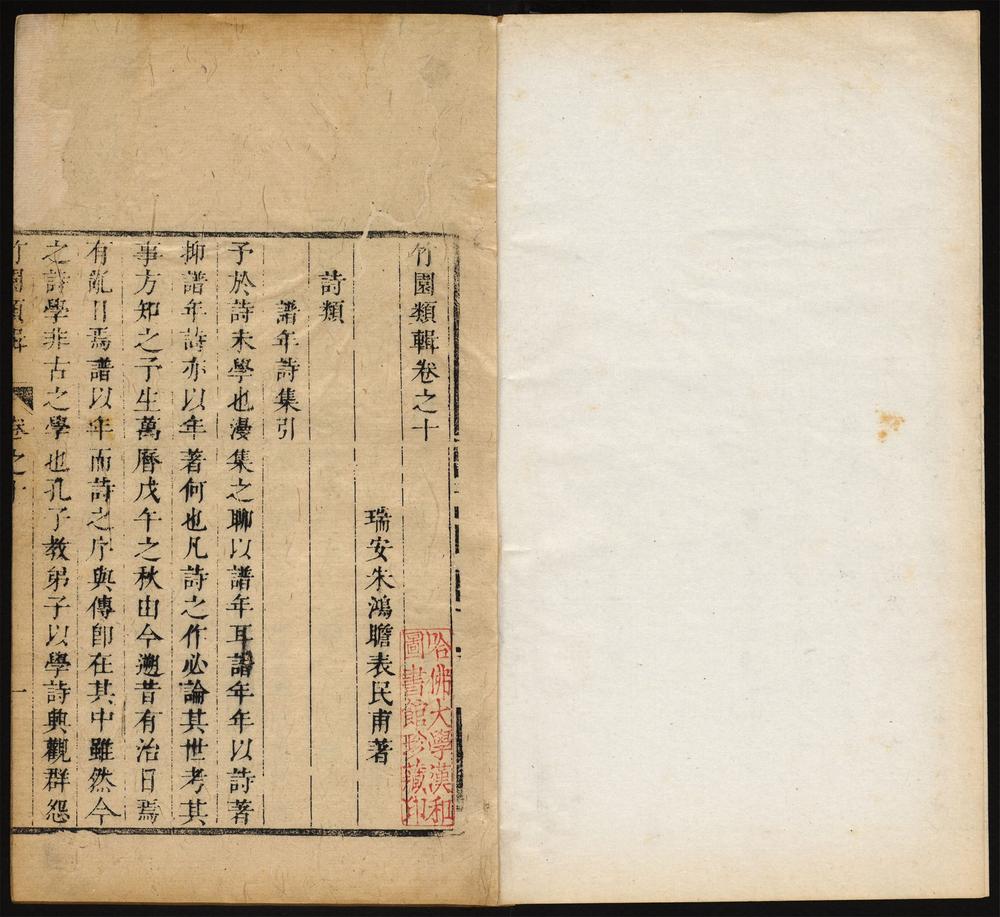 竹園類輯卷之十
瑞安朱鴻瞻表民甫著
詩類
譜年詩集引
予於詩未學也漫集之聊以譜年耳譜年年以詩著
抑譜年詩亦以年著何也凡詩之作必論其世考其
事方知之予生萬曆戊午之秋由今遡昔有治日焉
有亂日焉譜以年而詩之序與傳即在其中雖然今
之詩學非古之學也孔子教弟子以學詩興觀群怨
竹園類輯 卷之十 一
哈佛大學漢和
圖書館珍藏印